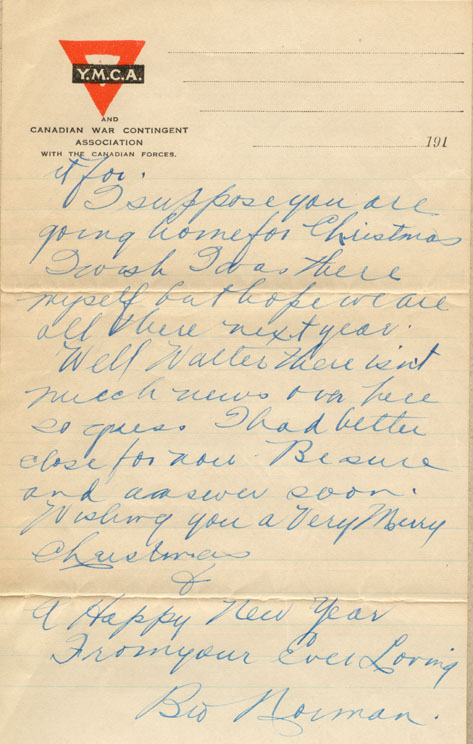 Y.M.C.A.
AND
CANADIAN WAR CONTINGENT
ASSOCIATION
WITH THE CANADIAN FORCES.
191
it for.
I suppose you are
going home for Christmas
I wish I was there
myself but hope we are
all there next year.
Well Walter there isn't
much news over here
so guess I had better
close for now. Be sure
and answer soon.
Wishing you a Very Merry
Christmas
&
A Happy New Year
From your Ever Loving
Bro Norman.